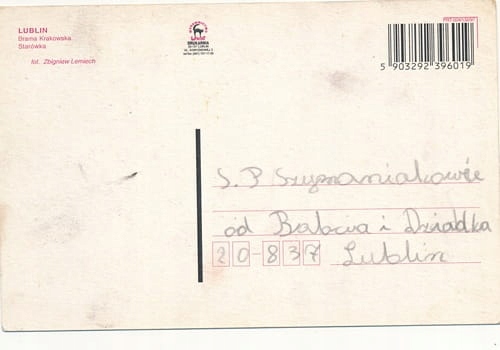 LUBLIN
Brama Krakowska
Starówka
fot. Zbigniew Lemiech
DRUKARNIA
5 903292 396019
S. P Szymaniakowie
od Babcia i Dziadka
20-837 Lublin